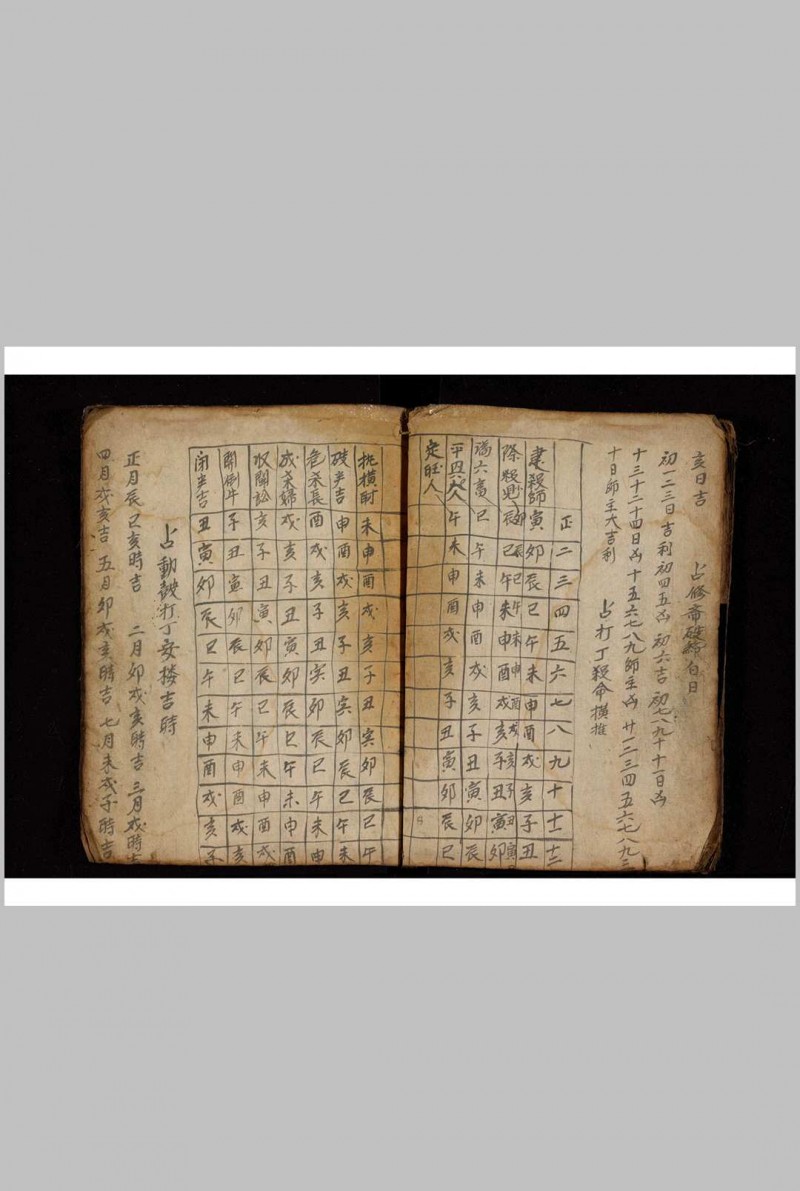 亥日吉 占修斋破 白日
初一二三日吉利初四五凶 初六吉 初七八九十十一日凶
十三十二十四日凶 十五六七八九師主凶 廿一二三四五六七八九三
十日師主大吉利 占打丁殺命横推
正二三四五六七八九十十一十二
建殺師寅卯辰巳午未申酉戌亥子丑
除殺 卯辰巳午未申酉戌亥子丑寅
辰巳午未申酉戌亥子丑寅卯
滿六畜巳午未申酉戌亥子丑寅卯辰
平 人午未申酉戌亥子丑寅卯辰巳
定旺人
执横財未申酉戌亥子丑寅卯辰巳午
破半吉申酉戌亥子丑寅卯辰巳午未
危杀長酉戌亥子丑寅卯辰巳午未申
成杀婦戌亥子丑寅卯辰巳午未申酉
收關訟亥子丑寅卯辰巳午未申酉戌
開倒牛子丑寅卯辰巳午未申酉戌亥
闭半吉丑寅卯辰巳午未申酉戌亥子
占動鼓打丁安楼吉時
正月辰巳亥時吉 二月卯戌亥時吉 三月戌時吉
四月戌亥吉 五月卯戌亥時吉 七月未戌子時吉